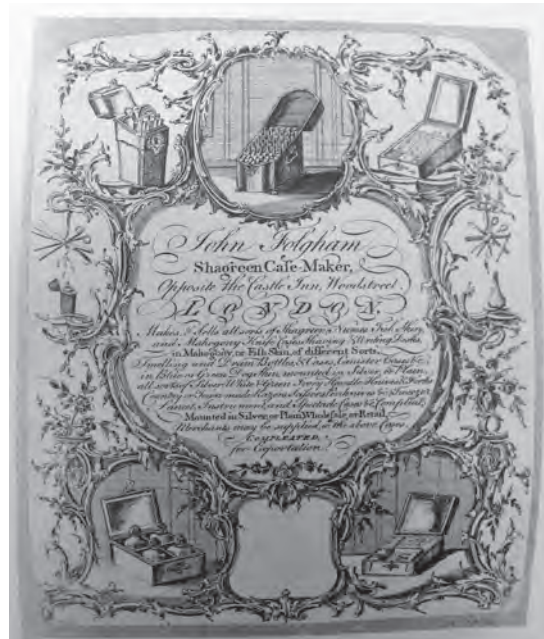 John Folgham
Shagreen Case-Maker,
Opposite the Castle Inn, Woodstreet
LONDON.
Makes & Sells all sorts of Shagreen, Nurses Fish Skin
and Mahogony Knife Cases Shaving & Writing Desks
in Mahogony, or Fish-Skin, of different Sorts,
Smelling and Dram Bottles & Cases, Canister Cases &c
in Skins or Green Dog Skin mounted in Silver, or Plain,
all sorts of Silver White & Green Ivory Handle Knives & Forks
Country or Town made Razors Scissors Penknives &c Tweezer
Lancet, Instrument, and Spectacle Cases &c Compleat,
Mounted in Silver, or Plain Wholesale, or Retail,
Merchants may be supplied with the above Cases,
COMPLEATED,
for Exportation.